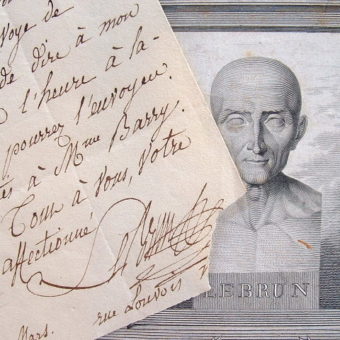 voye de
de dire à mon
l'heure à la-
pourrez l'envoyer.
à Mme Barry.
Tout à vous, votre
affectionné
rue Louvois
Mars.
LEBRUN